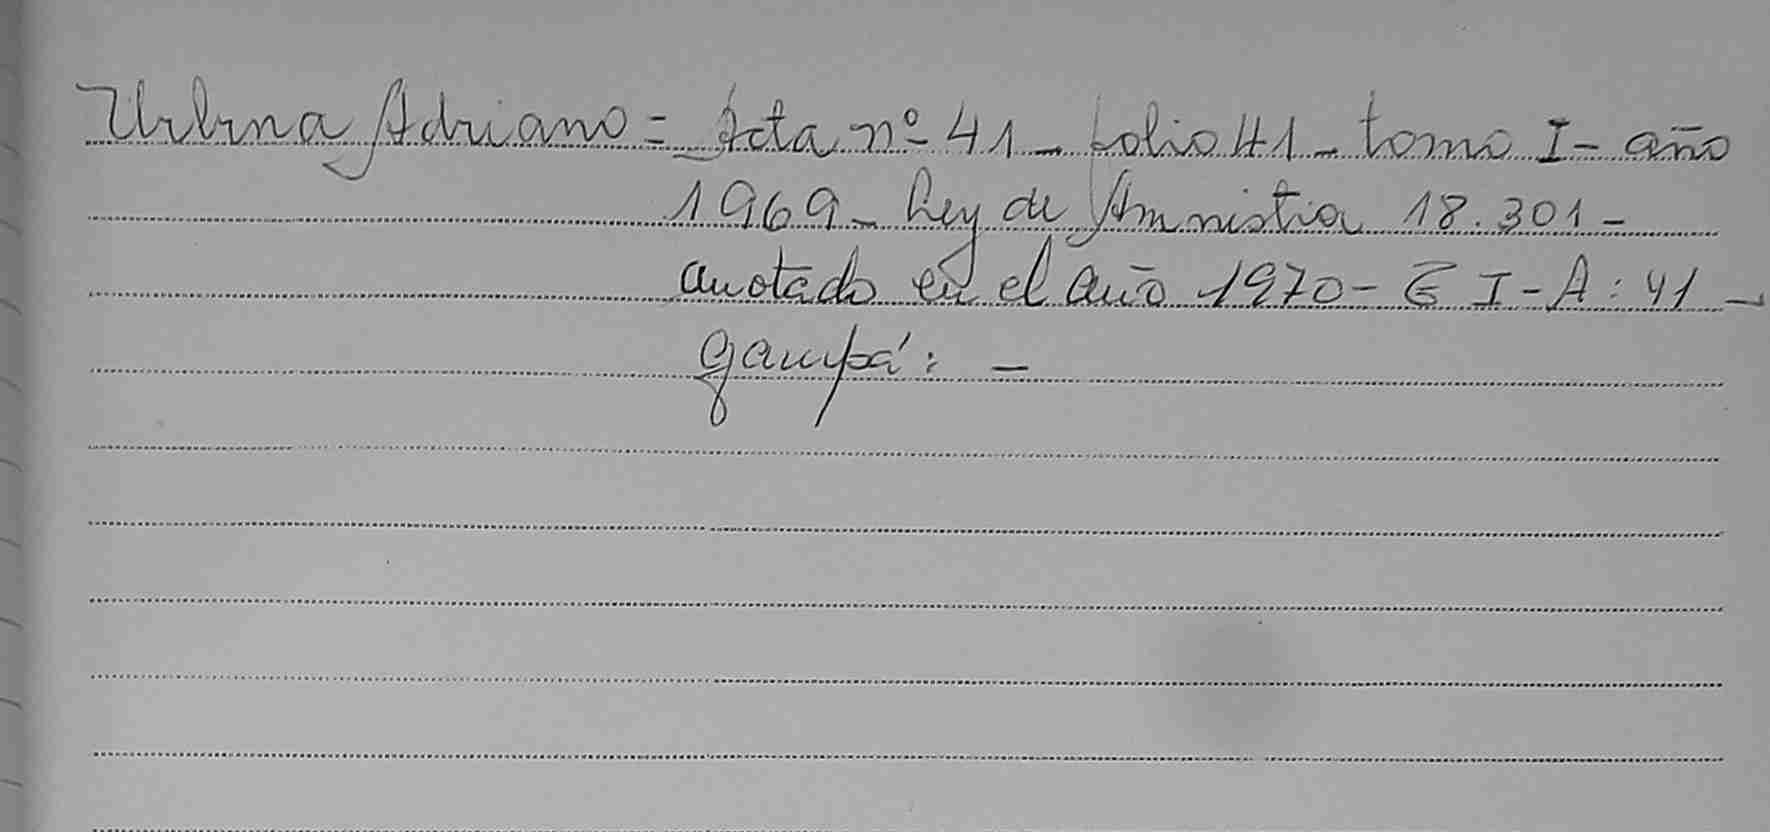 Urbina Adriano = Acta nº 41 - folio 41 - tomo I - año
1969 - Ley de Amnistia 18.301 -
anotado en el año 1970 - T I - A : 41 -